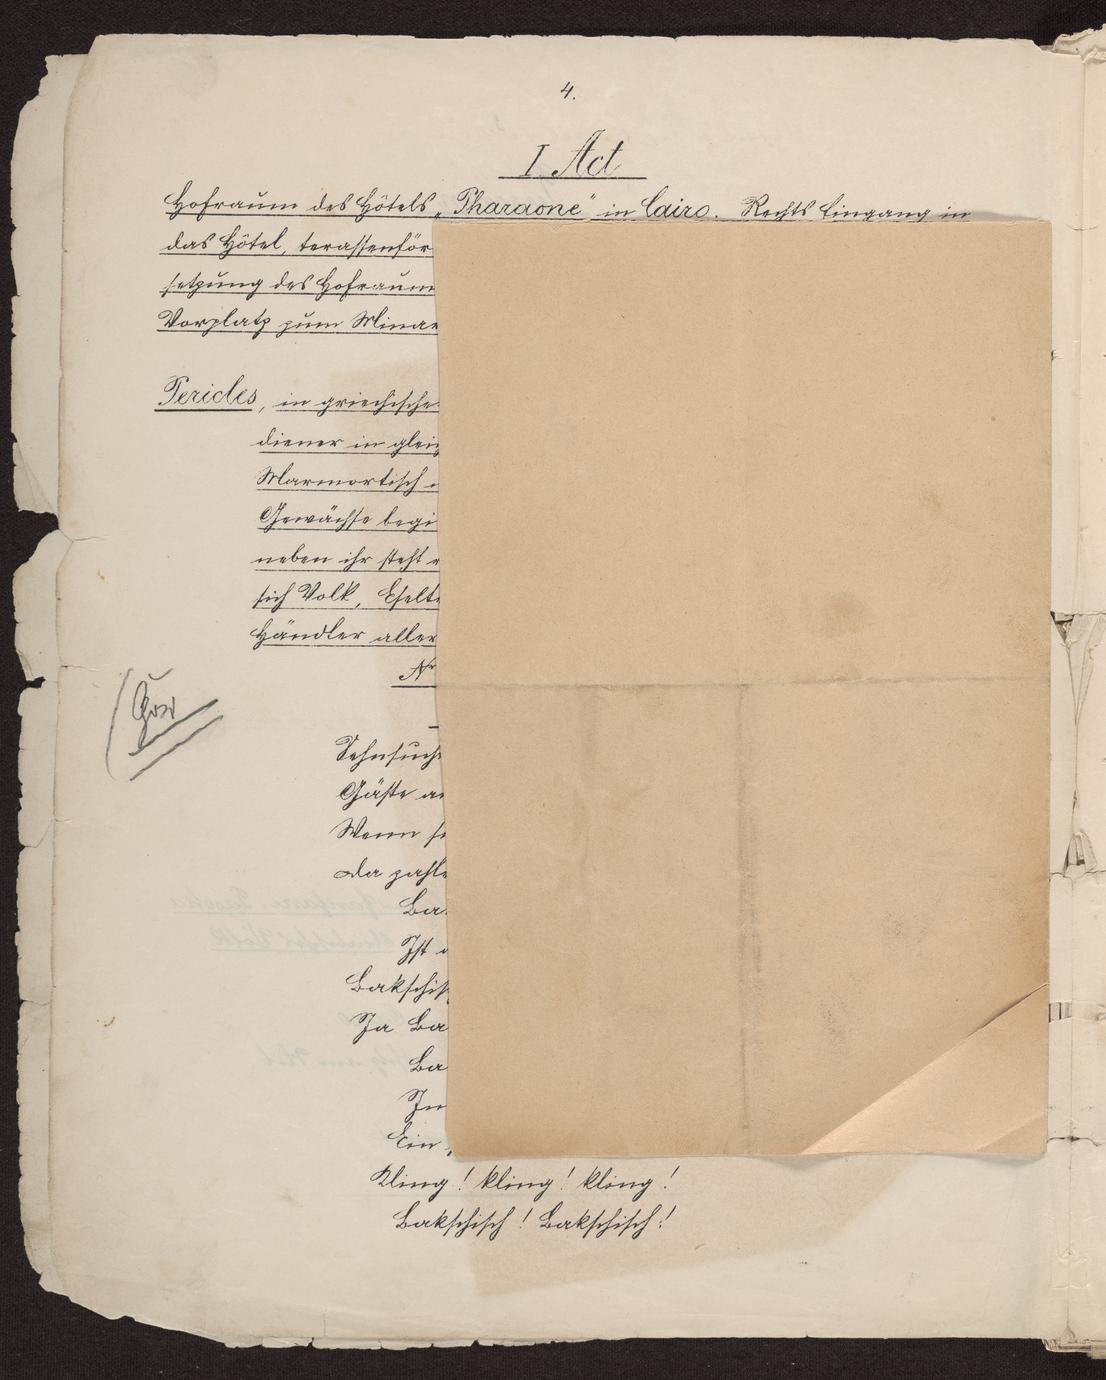 4.
I Act
Hofraum des Hôtels „Pharaone" in Cairo. Rechts Eingang in
das Hôtel, terassenför
setzung des Hofraum
Vorplatz zum Minar
Pericles, in griechische
diener in glei
Marmortisch
Gewächse begi
neben ihr steht
sich Volk, Eselt
Händler aller
Nr
Chor
Sehnsucht
Gäste an
Wenn s
Da zahle
Ba
Ist
Bakschis
Ja Ba
Ba
In
Ein
Kling! kling! kling!
Bakschisch! Bakschisch!